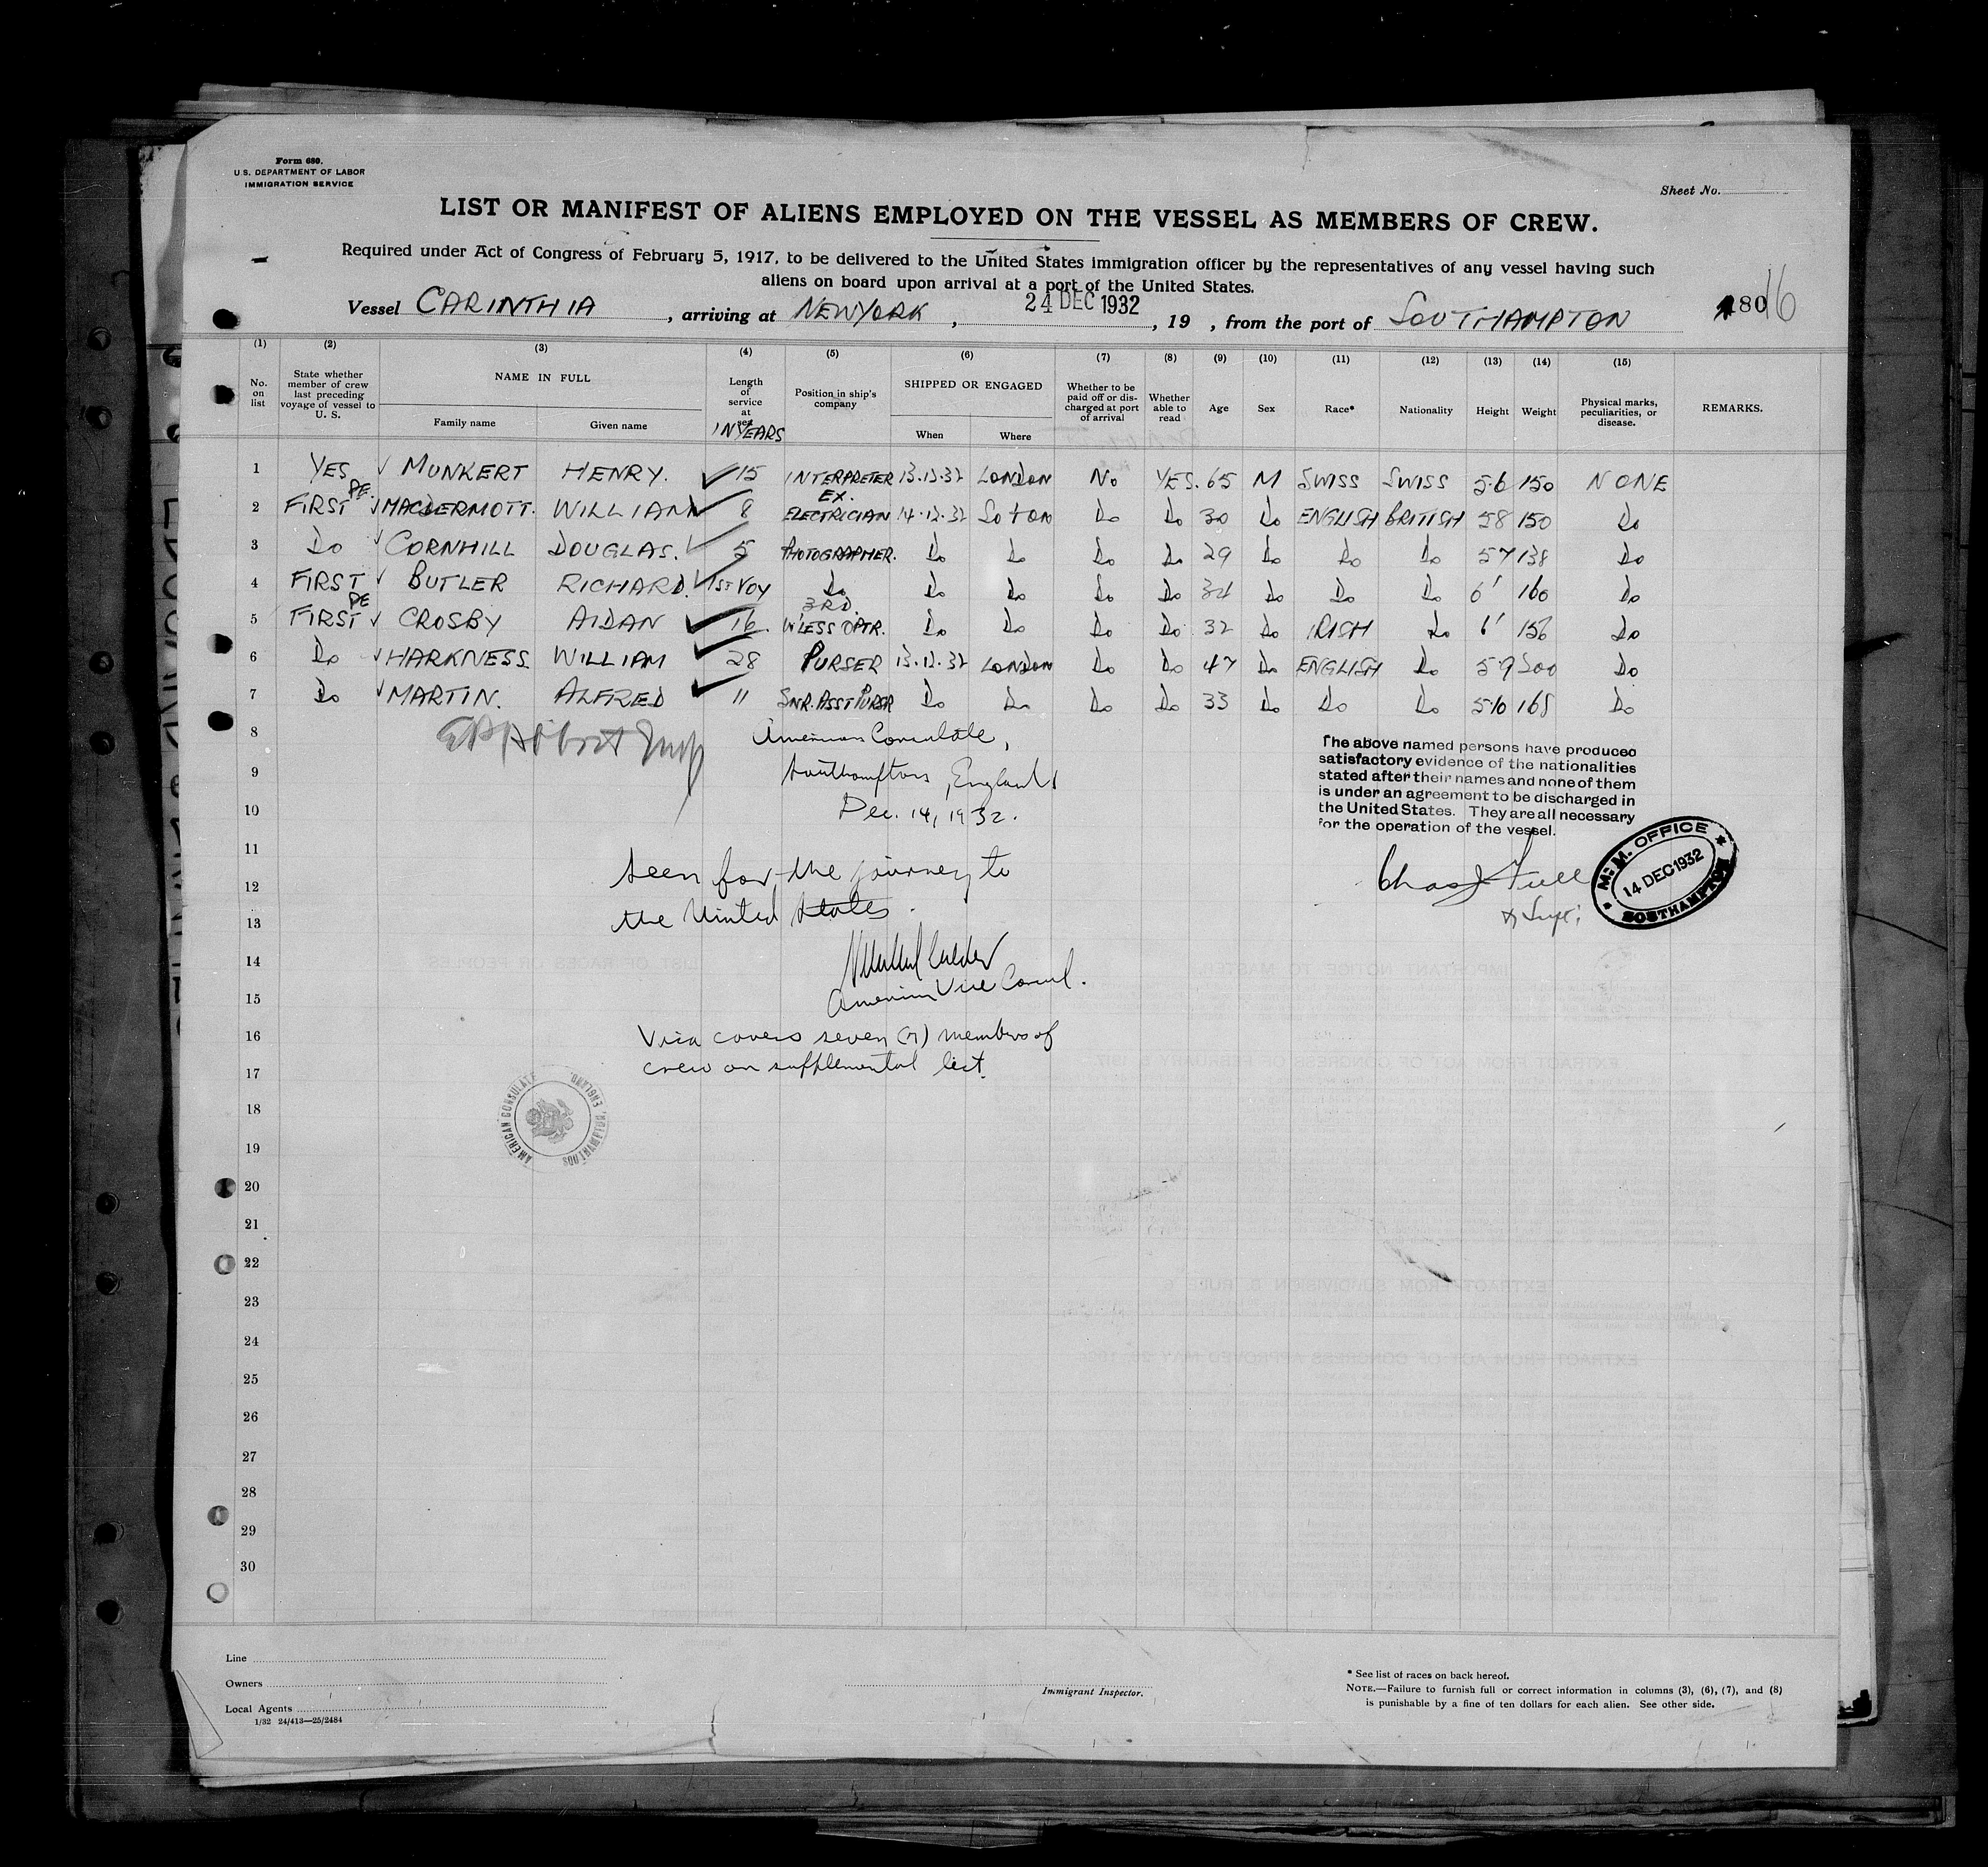 Form 680.
U.S. DEPARTMENT OF LABOR
IMMIGRATION SERVICE
Sheet No.
LIST OR MANIFEST OF ALIENS EMPLOYED ON THE VESSEL AS MEMBERS OF CREW.
Required under Act of Congress of February 5, 1917, to be delivered to the United States immigration officer by the representatives of any vessel having such
aliens on board upon arrival at a port of the United States.
Vessel CARINTHIA, arriving at NEWYORK, 24 DEC 1932, 19 , from the port of SOUTHAMPTON
(1) (2) (3) (4) (5) (6) (7) (8) (9) (10) (11) (12) (13) (14) (15)
No. on list
State whether member of crew last preceding voyage of vessel to U. S.
NAME IN FULL
Family name
Given name
Length of service at sea
IN YEARS
Position in ship's company
SHIPPED OR ENGAGED
When
Where
Whether to be paid off or discharged at port of arrival
Whether able to read
Age
Sex
Race*
Nationality
Height
Weight
Physical marks, peculiarities, or disease.
REMARKS.
1 YES MUNKERT HENRY. 15 INTERPRETER 13.12.32 LONDON No YES. 65 M SWISS SWISS 5.6 150 NONE
2 FIRST PE. MACDERMOTT. WILLIAM 8 EX. ELECTRICIAN 14.12.32 So'ton Do Do 30 Do ENGLISH BRITISH 58 150 Do
3 Do CORNHILL DOUGLAS. 5 PHOTOGRAPHER. Do Do Do Do 29 Do Do Do 57 138 Do
4 FIRST BUTLER RICHARD. 1ST VOY Do Do Do Do Do Do Do Do 6' 160 Do
5 FIRST PE CROSBY AIDAN 16 3RD. W'LESS OPTR. Do Do Do Do 32 Do IRISH Do 6' 156 Do
6 Do HARKNESS. WILLIAM 28 PURSER 13.12.32 LONDON Do Do 47 Do ENGLISH Do 5.9 200 Do
7 Do MARTIN. ALFRED 11 SNR. ASST PURSR Do Do Do Do 33 Do Do Do 5.10 168 Do
8
American Consulate,
9
Southampton, England
10
Dec. 14, 1932.
The above named persons have produced
satisfactory evidence of the nationalities
stated after their names and none of them
is under an agreement to be discharged in
the United States. They are all necessary
for the operation of the vessel.
M. M. OFFICE
14 DEC 1932
SOUTHAMPTON
11
Seen for the journey to
12
the United States.
13
14
15
American Vice Consul.
16
Visa covers seven (7) members of
17
crew on supplemental list.
AMERICAN CONSULATE
SOUTHAMPTON, ENGLAND.
18
19
20
21
22
23
24
25
26
27
28
29
30
Line
Owners
Local Agents
1/32 24/413—25/2484
Immigrant Inspector.
* See list of races on back hereof.
NOTE.—Failure to furnish full or correct information in columns (3), (6), (7), and (8)
is punishable by a fine of ten dollars for each alien. See other side.